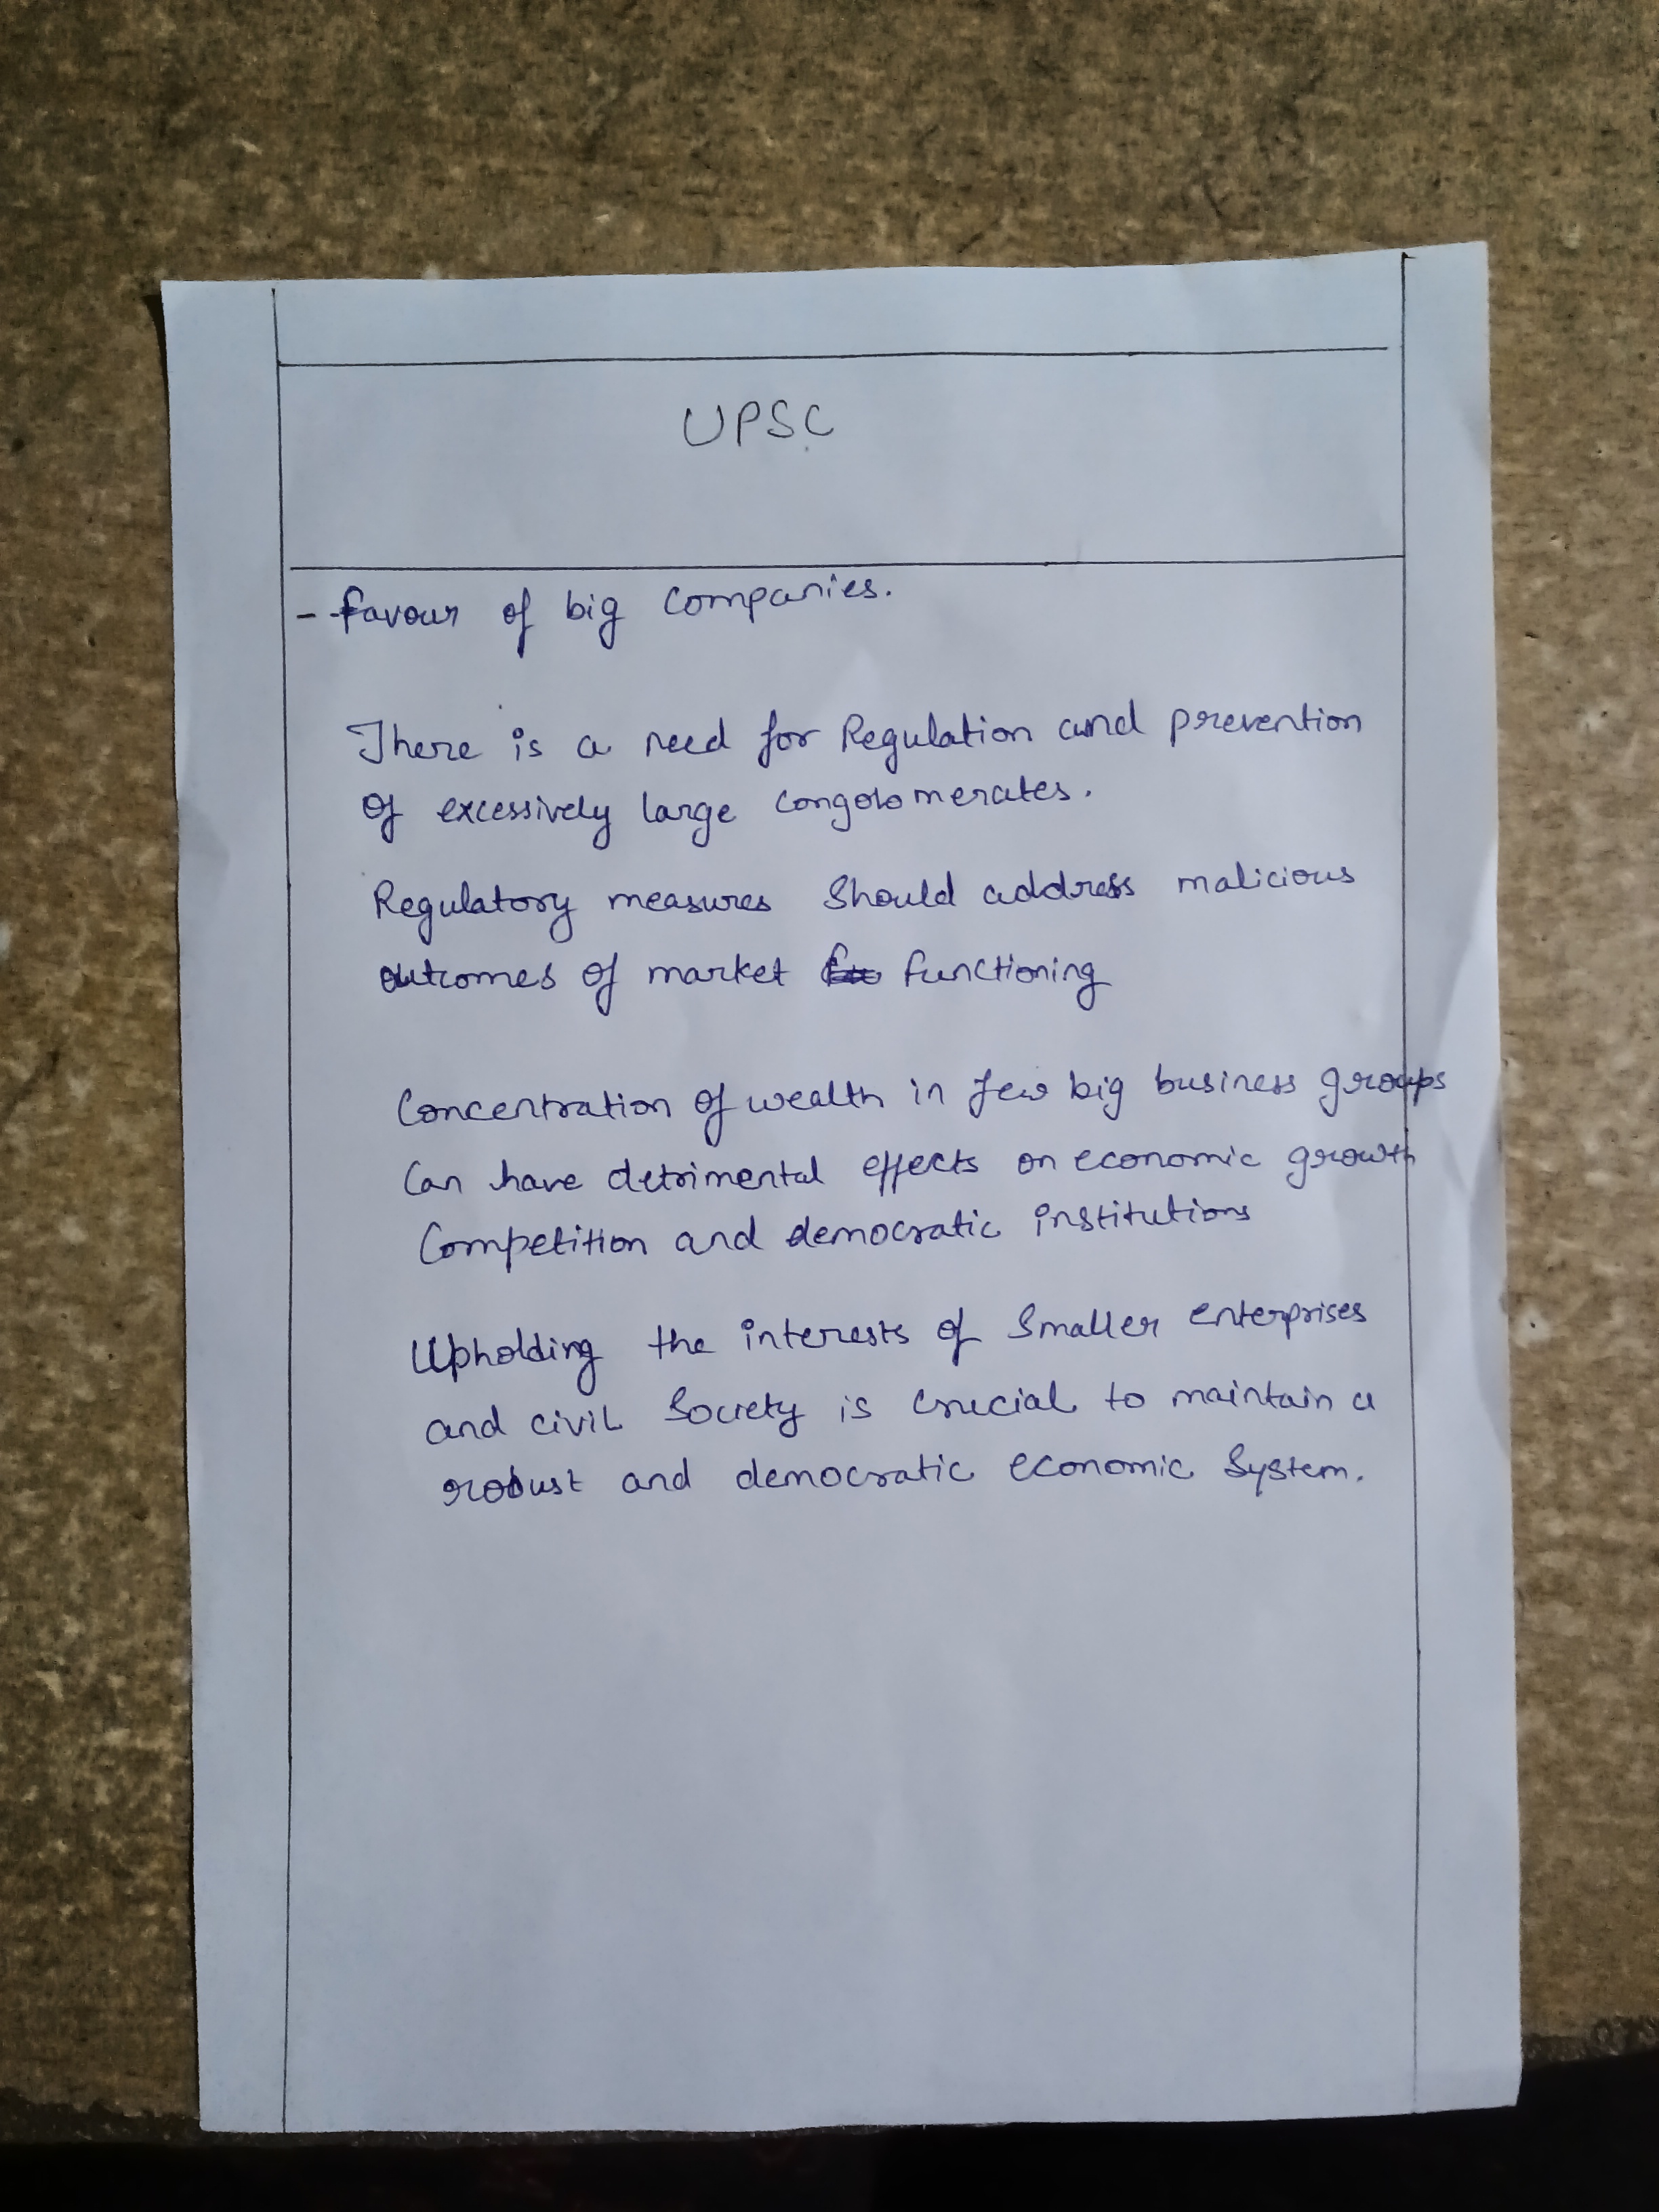 UPSC
- favour of big companies.
There is a need for Regulation and prevention
of excessively large congolomerates.
Regulatory measures should address malicious
outcomes of market functioning
Concentration of wealth in few big business groups
can have detrimental effects on economic growth
Competition and democratic institutions
Upholding the interests of smaller enterprises
and civil society is crucial to maintain a
robust and democratic economic system.